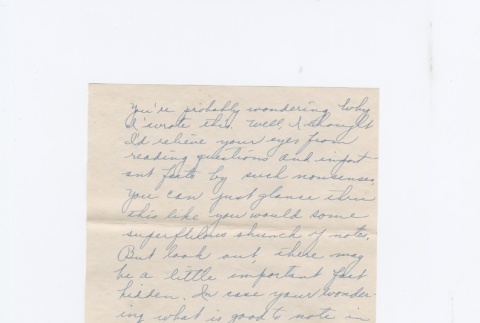 You're probably wondering why
I wrote this. Well, I thought
I'd relieve your eyes from
reading questions and import
ant facts by such nonsense.
You can just glance thru
this like you would some
superfluous chunch of notes.
But look out, there may
be a little important fact
hidden. In case your wonder-
ing what is good to note in